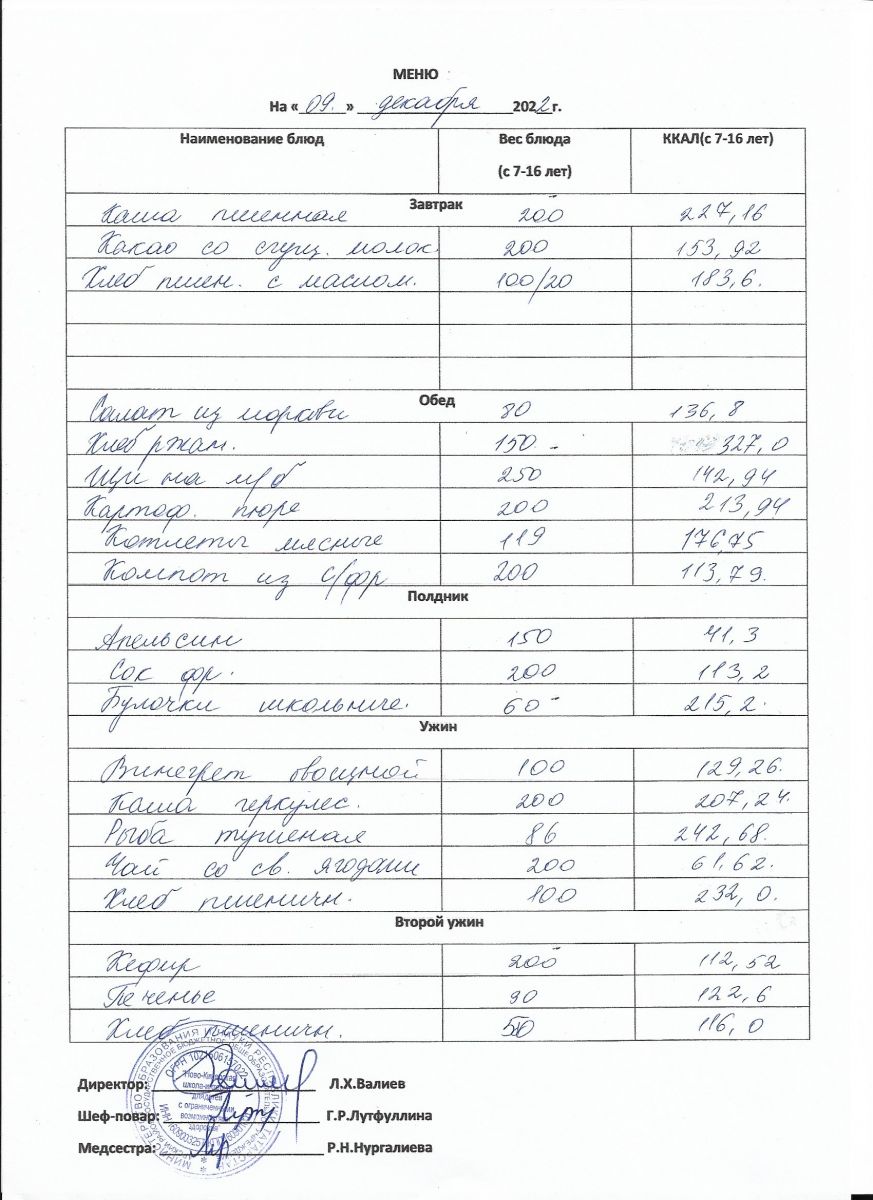 МЕНЮ
На « 09. » декабря 2022 г.
Наименование блюд Вес блюда (с 7-16 лет) ККАЛ(с 7-16 лет)
Завтрак
Каша пшенная 200 227,16
Какао со сгущ. молок. 200 153,92
Хлеб пшен. с маслом. 100/20 183,6.
Обед
Салат из моркови 80 136,8
Хлеб ржан. 150 - 327,0
Щи на м/б 250 142,94
Картоф. пюре 200 213,94
Котлеты мясные 119 176,75
Компот из с/фр 200 113,79.
Полдник
Апельсин 150 41,3
Сок фр. 200 113,2
Булочки школьные. 60 - 215,2.
Ужин
Винегрет овощной 100 129,26.
Каша геркулес. 200 207,24.
Рыба тушеная 86 242,68.
Чай со св. ягодами 200 61,62.
Хлеб пшеничн. 100 232,0.
Второй ужин
Кефир 200 112,52
Печенье 90 122,6
Хлеб пшеничн. 50 116,0
Директор: Л.Х.Валиев
Шеф-повар: Г.Р.Лутфуллина
Медсестра: Р.Н.Нургалиева